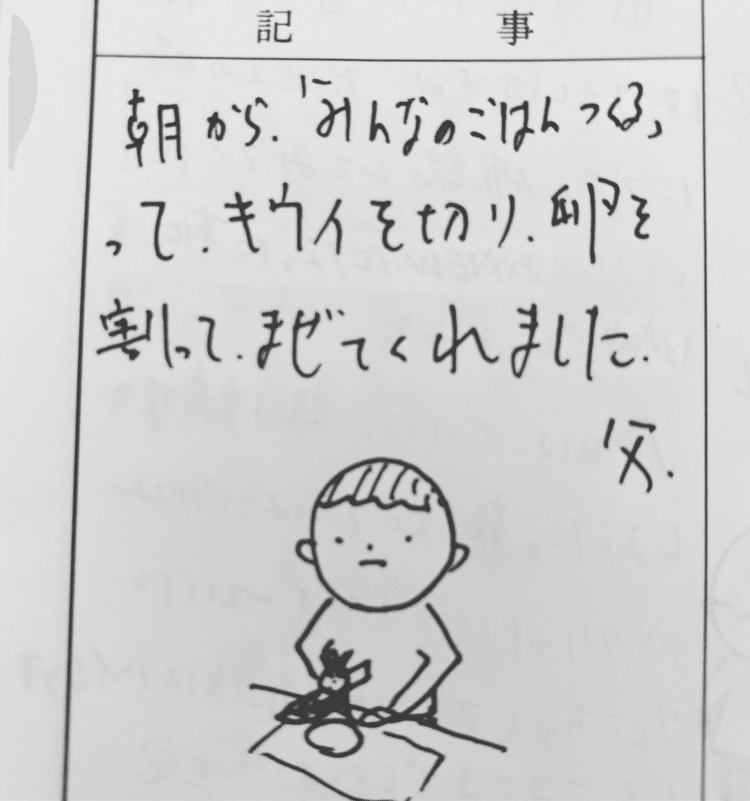 記 事
朝から、「みんなのごはんつくる」
って、キウイを切り、卵を
割って、まぜてくれました。
父.